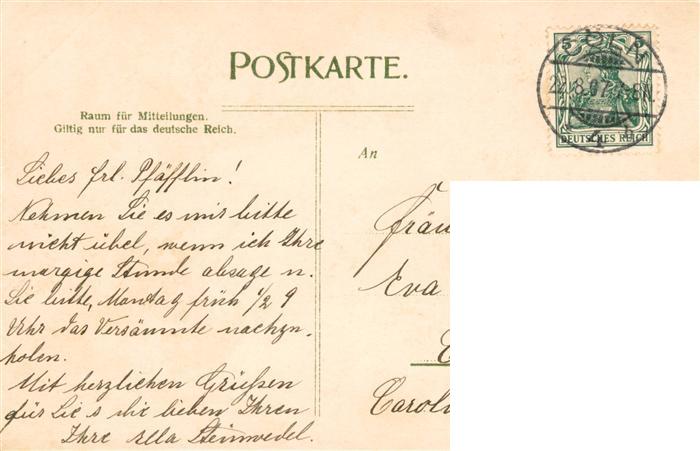 POSTKARTE.
5 5
ULM
22.8.07.
DEUTSCHES REICH
Raum für Mitteilungen.
Giltig nur für das deutsche Reich.
An
Liebes frl. Pfäfflin!
Nehmen Sie es mir bitte
nicht übel, wenn ich Ihre
morgige Stunde absage u.
Sie bitte, Montag früh 1/2 9
Uhr das Versäumte nachzu-
holen.
Mit herzlichen Grüßen
für Sie & die lieben Ihren
Ihre Ella Steinwedel.
Fräu
Eva
Carol